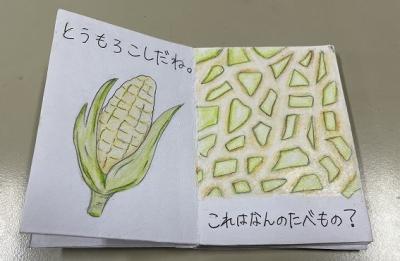 とうもろこしだね。
これはなんのたべもの?